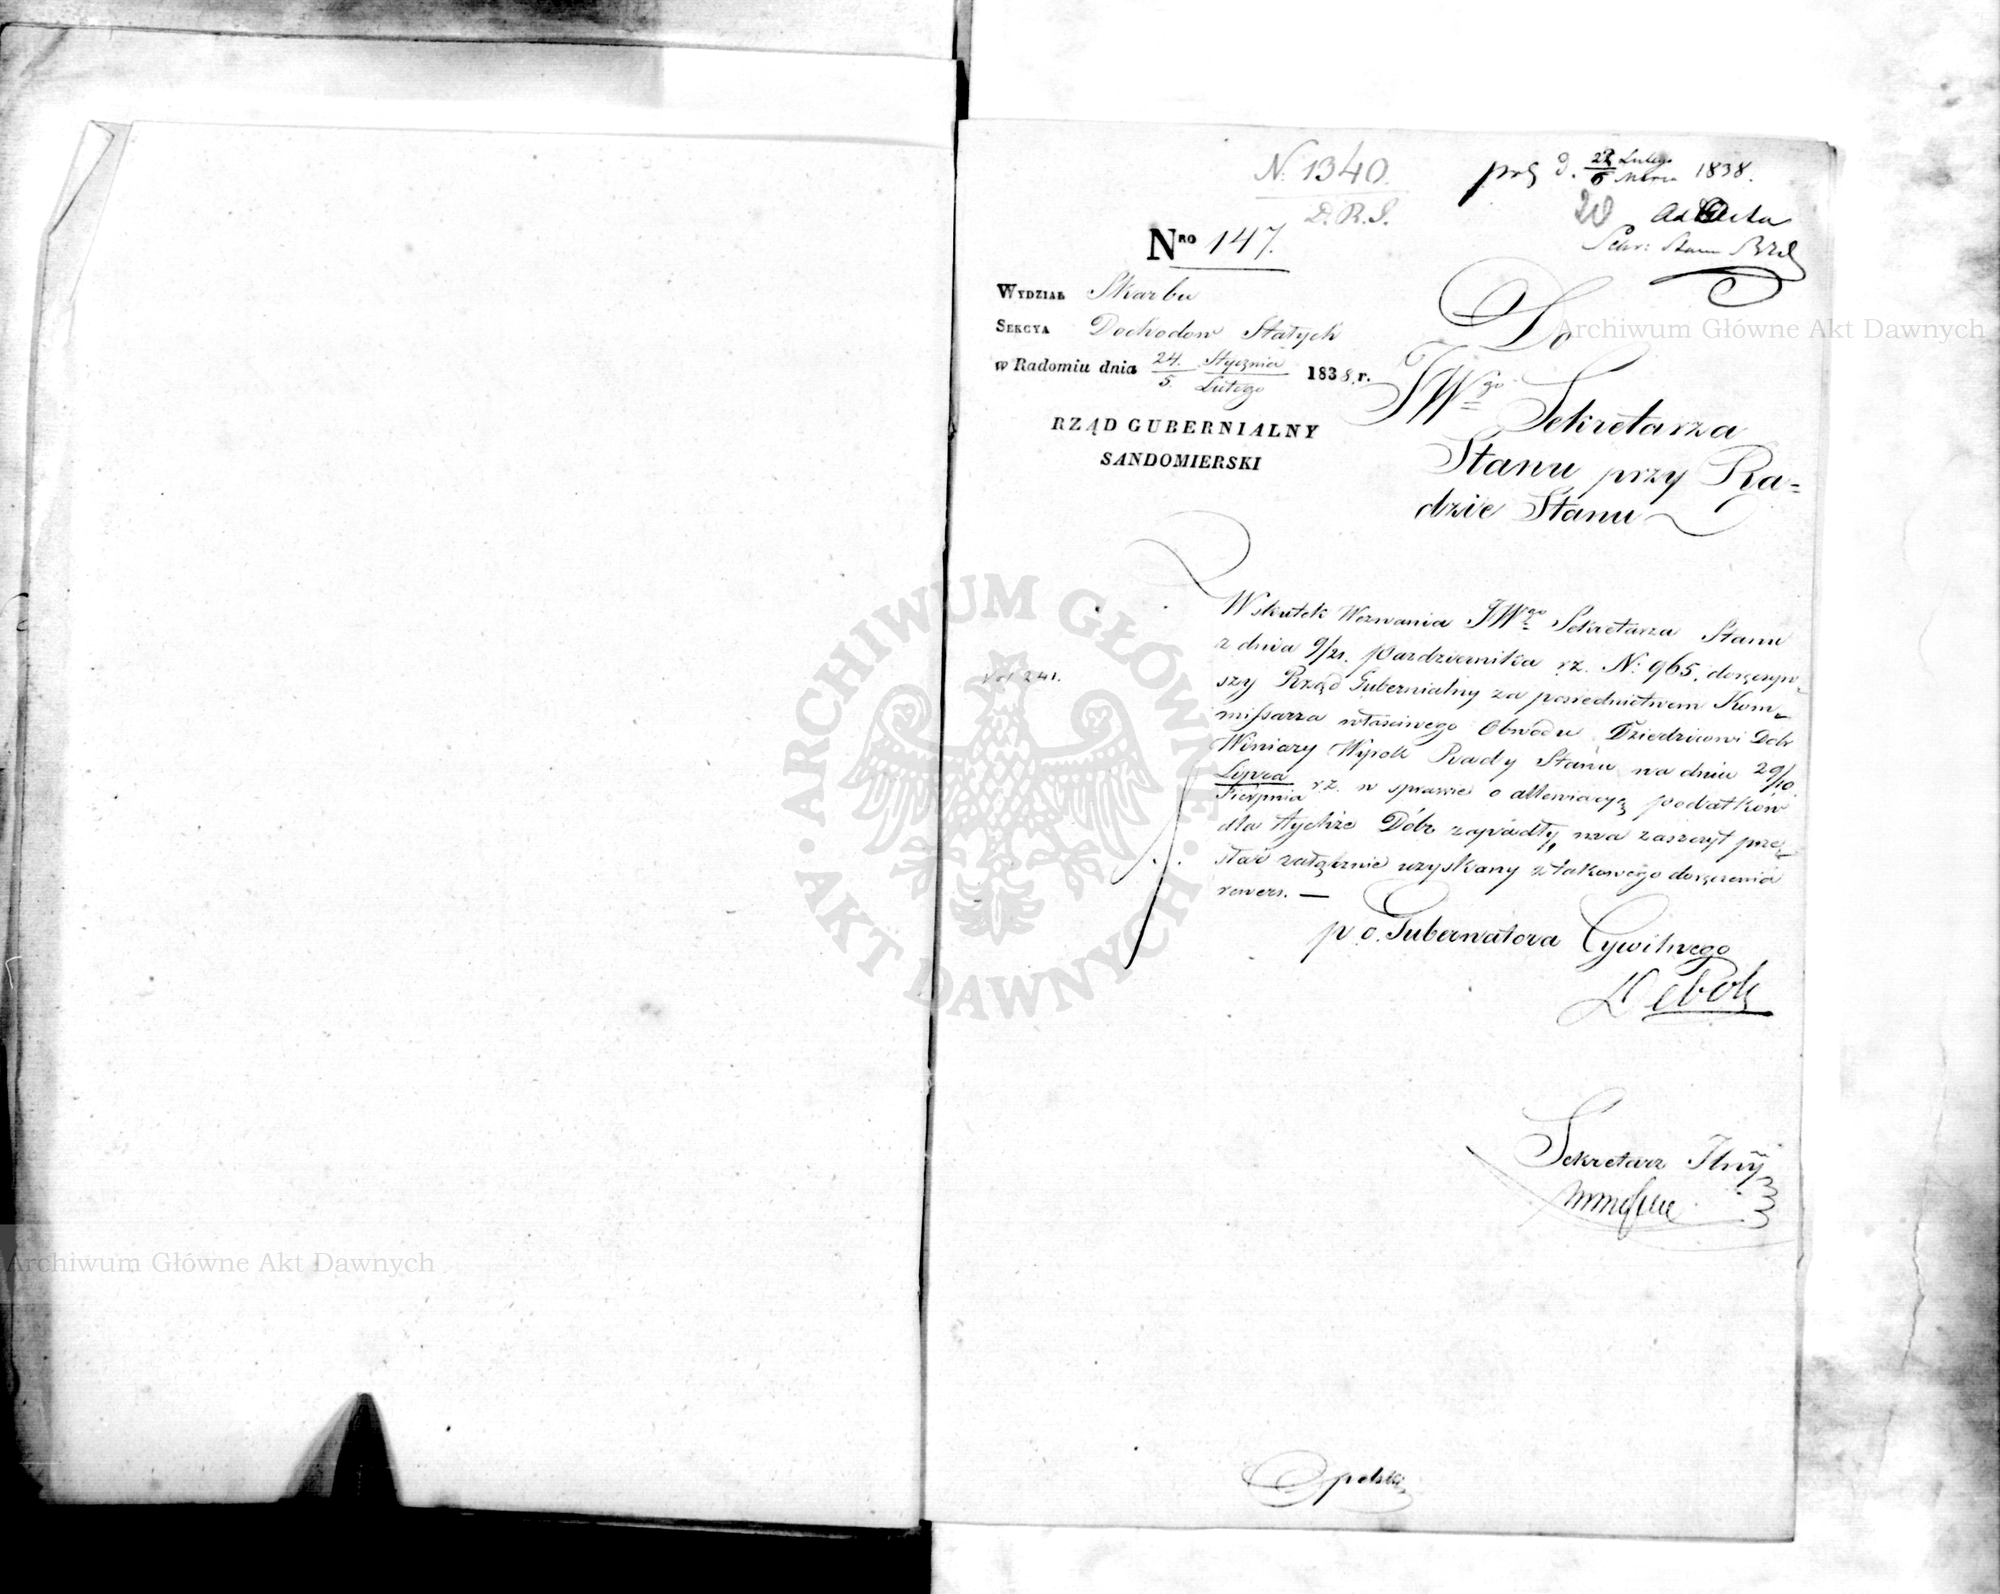 N. 1340.
D. R. S.
d. 22/6 Lutego/Marca 1838.
20
Ad Acta
Sekr: Stanu
Nro 147.
WYDZIAŁ Skarbu
SEKCYA Dochodow Stałych
w Radomiu dnia 24. Stycznia / 5. Lutego 1838. r.
RZĄD GUBERNIALNY
SANDOMIERSKI
Do
JWgo Sekretarza
Stanu przy Ra=
dzie Stanu
Wskutek Wezwania JWgo Sekretarza Stanu
z dnia 9/21. Pazdziernika rz. N: 965. doręczyw-
szy Rząd Gubernialny za posrednictwem Kom-
missarza właściwego Obwodu Dziedzicowi Dobr
Winiary Wyrok Rady Stanu na dniu 29/10.
Lipca/Sierpnia rz. w sprawie o allewiacyą podatkow
dla tychże Dóbr zapadły, ma zaszczyt prze-
słać załącznie uzyskany z takowego doręczenia
rewers. —
Vol 241.
p. o. Gubernatora Cywilnego
Sekretarz Jlny
Opolski
Archiwum Główne Akt Dawnych
Archiwum Główne Akt Dawnych
ARCHIWUM GŁÓWNE
AKT DAWNYCH